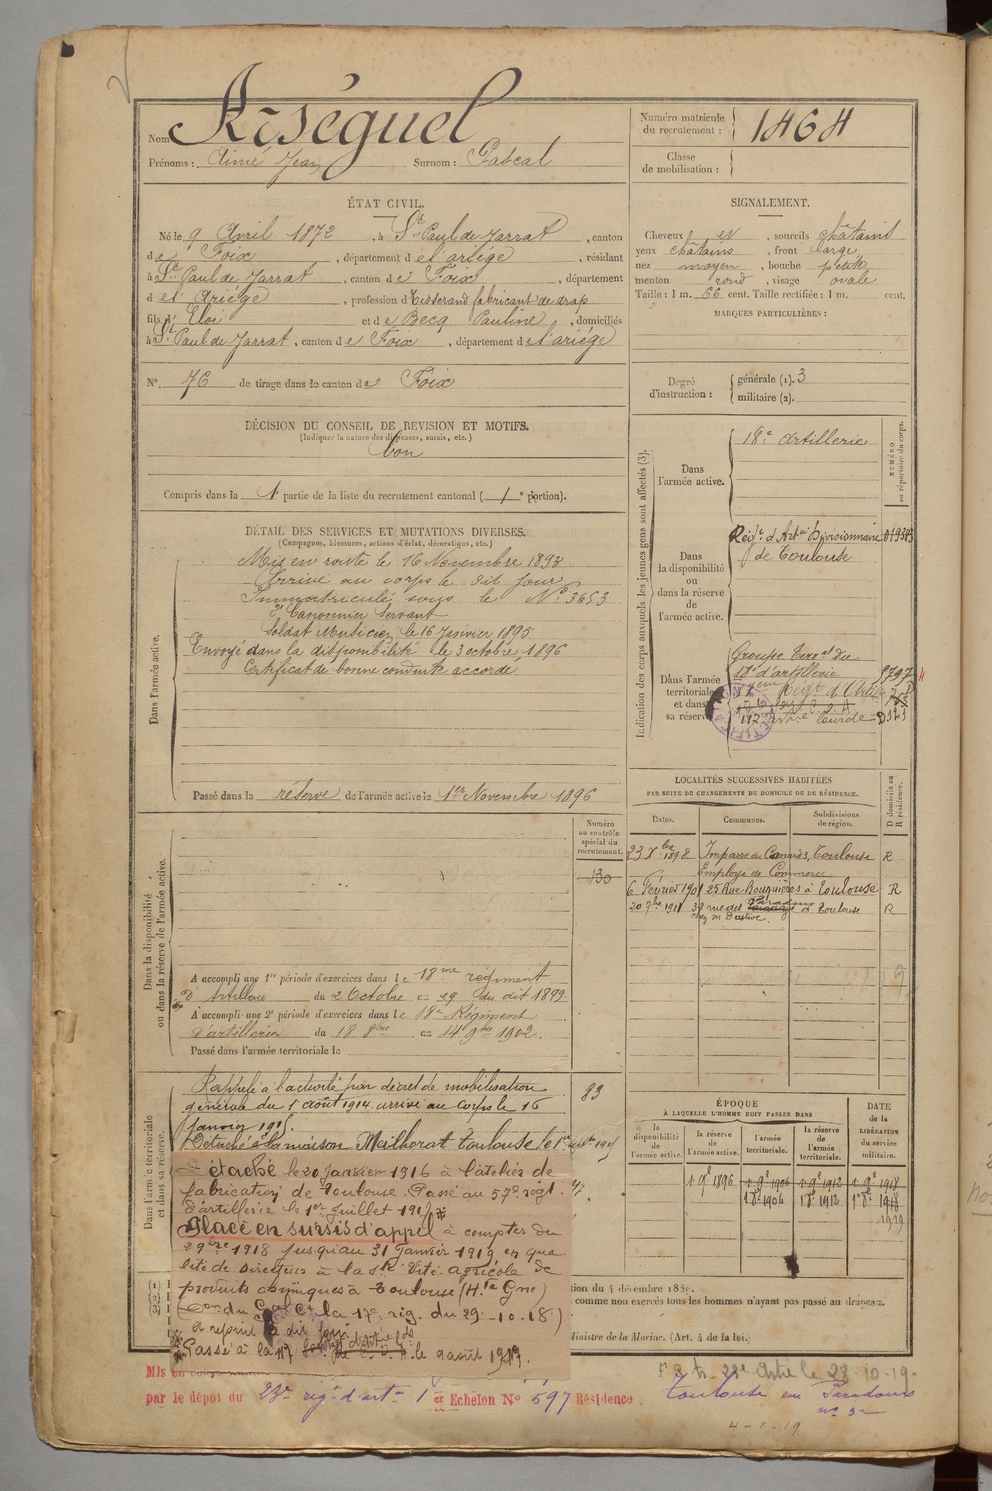 Nom Arséguel
Prénoms : Aimé Jean Surnom : Pascal
Numéro matricule du recrutement : 1464
Classe de mobilisation :
ÉTAT CIVIL.
Né le 9 Avril 1872, à St Paul de Jarrat, canton
de Foix, département de l'ariége, résidant
à St Paul de Jarrat, canton de Foix, département
d el' Ariége, profession de Tisserand fabricant de drap
fils d' Eloi et de Becq Pauline, domiciliés
à St Paul de Jarrat, canton de Foix, département de l'ariége
N° 76 de tirage dans le canton de Foix
SIGNALEMENT.
Cheveux et, sourcils châtains
yeux châtains, front large
nez moyen, bouche petite
menton rond, visage ovale
Taille : 1 m. 66 cent. Taille rectifiée : 1 m. cent.
MARQUES PARTICULIÈRES :
Degré d'instruction : générale (1). 3
militaire (2).
DÉCISION DU CONSEIL DE REVISION ET MOTIFS.
(Indiquer la nature des dispenses, sursis, etc.)
bon
Compris dans la 1 partie de la liste du recrutement cantonal ( 1 e portion).
DÉTAIL DES SERVICES ET MUTATIONS DIVERSES.
(Campagnes, blessures, actions d'éclat, décorations, etc.)
Dans l'armée active.
Mis en route le 16 Novembre 1893
Arrivé au corps le dit jour
Immatriculé sous le N° 3653
2e Canonnier Servant
Soldat Musicien le 16 Janvier 1895
Envoyé dans la disponibilité le 3 octobre 1896
Certificat de bonne conduite accordé
Passé dans la réserve de l'armée active le 1er Novembre 1896
Indication des corps auxquels les jeunes gens sont affectés (3).
NUMÉRO au répertoire du corps.
Dans l'armée active.
18e Artillerie
Dans la disponibilité ou dans la réserve de l'armée active.
Regt d'Artie Divisionnaire
de Toulouse
Dans l'armée territoriale et dans sa réserve
Groupe Terral du
18e d'artillerie
117e artie lourde
LOCALITÉS SUCCESSIVES HABITÉES
PAR SUITE DE CHANGEMENTS DE DOMICILE OU DE RÉSIDENCE.
D domicile ou R résidence.
Dates. Communes. Subdivisions de région.
23 Xbre 1898 Impasse des Canards, Toulouse R
Employé de Commerce
6 Février 1901 25 Rue Bouquières à Toulouse R
20 7bre 1911 32 rue des Paradoux à Toulouse R
Dans la disponibilité ou dans la réserve de l'armée active.
Numéro au contrôle spécial du recrutement.
130
A accompli une 1re période d'exercices dans le 18me regiment
d'Artillerie du 2 Octobre au 29 du dit 1899.
A accompli une 2e période d'exercices dans le 18e Régiment
d'artillerie du 18 8bre au 14 9bre 1902.
Passé dans l'armée territoriale le
Dans l'armée territoriale et dans sa réserve.
Rappelé à l'activité par décret de mobilisation
générale du 1er août 1914. arrivé au corps le 16
Janvier 1915.
83
Détaché à la maison Toulouse le 1er
Détaché le 20 Janvier 1916 à l'atelier de
fabrication de Toulouse. Passé au 57e régt
d'artillerie le 1er Juillet 1917
Placé en sursis d'appel à compter du
29 1918 jusqu'au 31 Janvier 1919 en qua
lité de Directeur à la sté agricole de
produits chimiques à Toulouse (Hte Gne)
(on du Gal Ct la 17e rég. du 29-10-18.)
Passé à la le 9 aout 1917.
ÉPOQUE
À LAQUELLE L'HOMME DOIT PASSER DANS
DATE de la LIBÉRATION du service militaire.
la disponibilité de l'armée active. la réserve de l'armée active. l'armée territoriale. la réserve de l'armée territoriale.
1 9e 1896 1 9e 1906 1 9e 1912 1 9e 1918
1 8e 1906 1 8e 1912 1er 8e 1918
1919
tion du 4 décembre 1889.
comme non exercés tous les hommes n'ayant pas passé au drapeau.
Ministre de la Marine. (Art. 4 de la loi.)
Mis en
par le dépôt du 23e régt d'artie 1er Echelon No 597 Résidence
23e Artie le 28-10-19.
Toulouse rue Paradoux
no 32
4-2-19